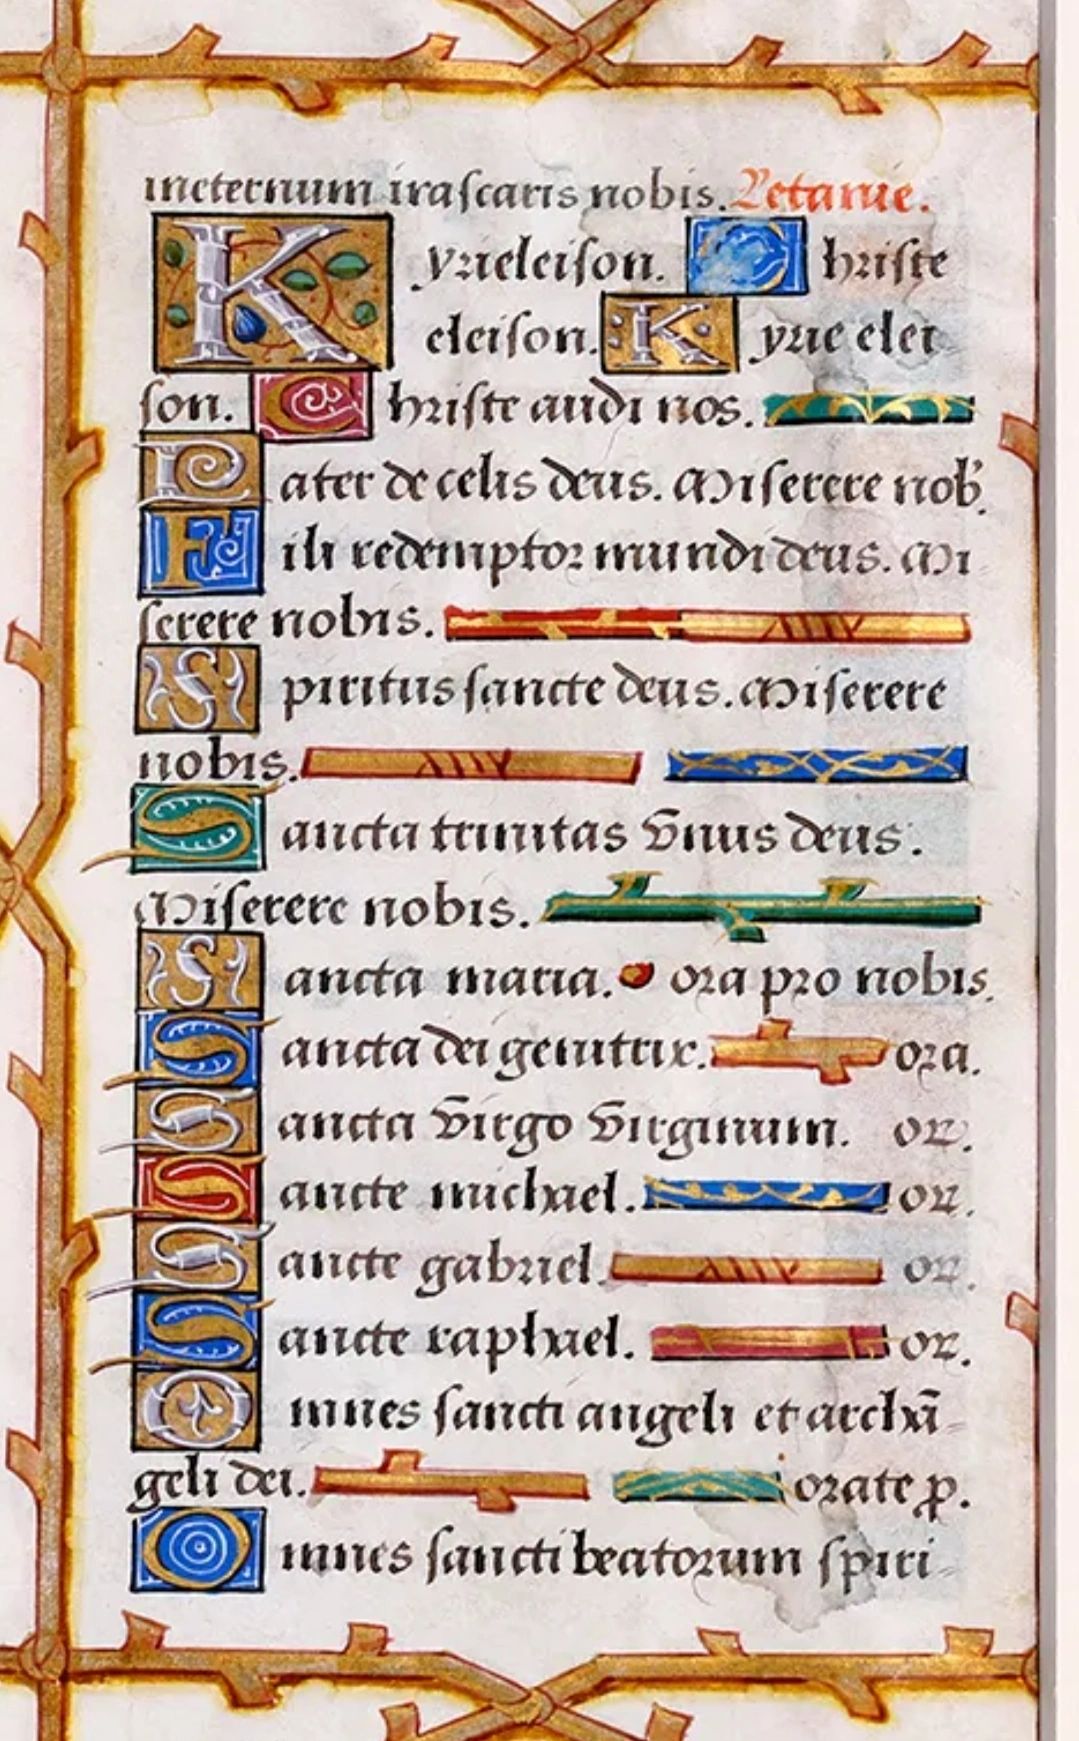 incternum irascaris nobis. Letanie.
Kyrieleison. Christe
eleison. Kyrie elei
son. Christe audi nos.
Pater de celis deus. Miserere nob'.
Fili redemptor mundi deus. Mi-
serere nobis.
Spiritus sancte deus. Miserere
nobis.
Sancta trinitas vnus deus.
Miserere nobis.
Sancta maria. ora pro nobis.
Sancta dei genitrix. ora.
Sancta virgo virginum. or.
Sancte michael. or.
Sancte gabriel. or.
Sancte raphael. or.
Omnes sancti angeli et archā-
geli dei. orate ꝓ.
Omnes sancti beatorum spiri-